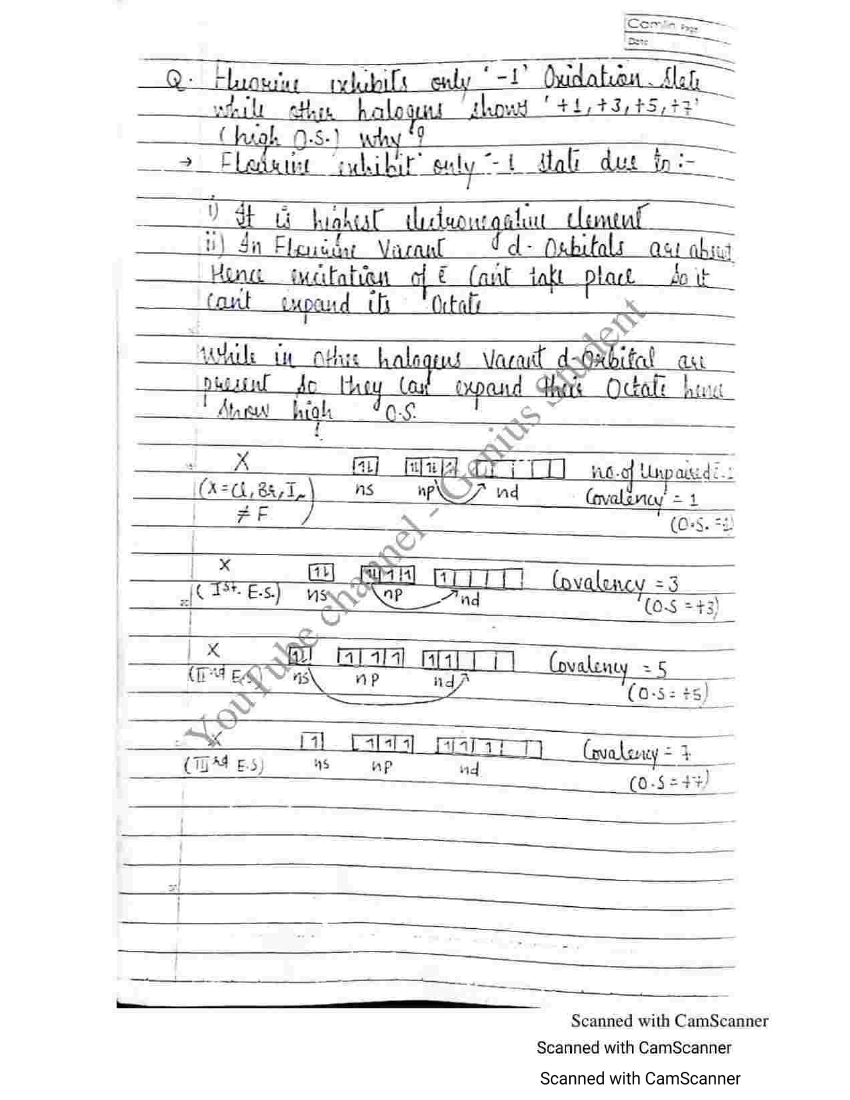 Camlin Page
Date
Q. Fluorine exhibits only '-1' Oxidation State
while other halogens shows '+1, +3, +5, +7'
(high O.S.) why ?
→ Flourine exhibit only -1 state due to :-
i) It is highest electronegative element
ii) In Flourine Vacant d-Orbitals are absent
Hence excitation of ē can't take place So it
can't expand its Octate
While in other halogens Vacant d-Orbital are
present So they can expand their Octate hence
Show high O.S.
X 1⇂ 1⇂ 1⇂ 1 no. of Unpaired ē
(X = Cl, Br, I ns np nd Covalency = 1
≠ F (O.S. =
X 1⇂ 1⇂ 1 1 1 Covalency = 3
( Ist. E.S.) ns np nd (O.S = +3)
X 1⇂ 1 1 1 1 1 Covalency = 5
(IInd E.S ns np nd (O.S = +5)
X 1 1 1 1 1 1 1 Covalency = 7
(IIIrd E.S) ns np nd (O.S = +7)
YouTube channel - Genius Student
Scanned with CamScanner
Scanned with CamScanner
Scanned with CamScanner